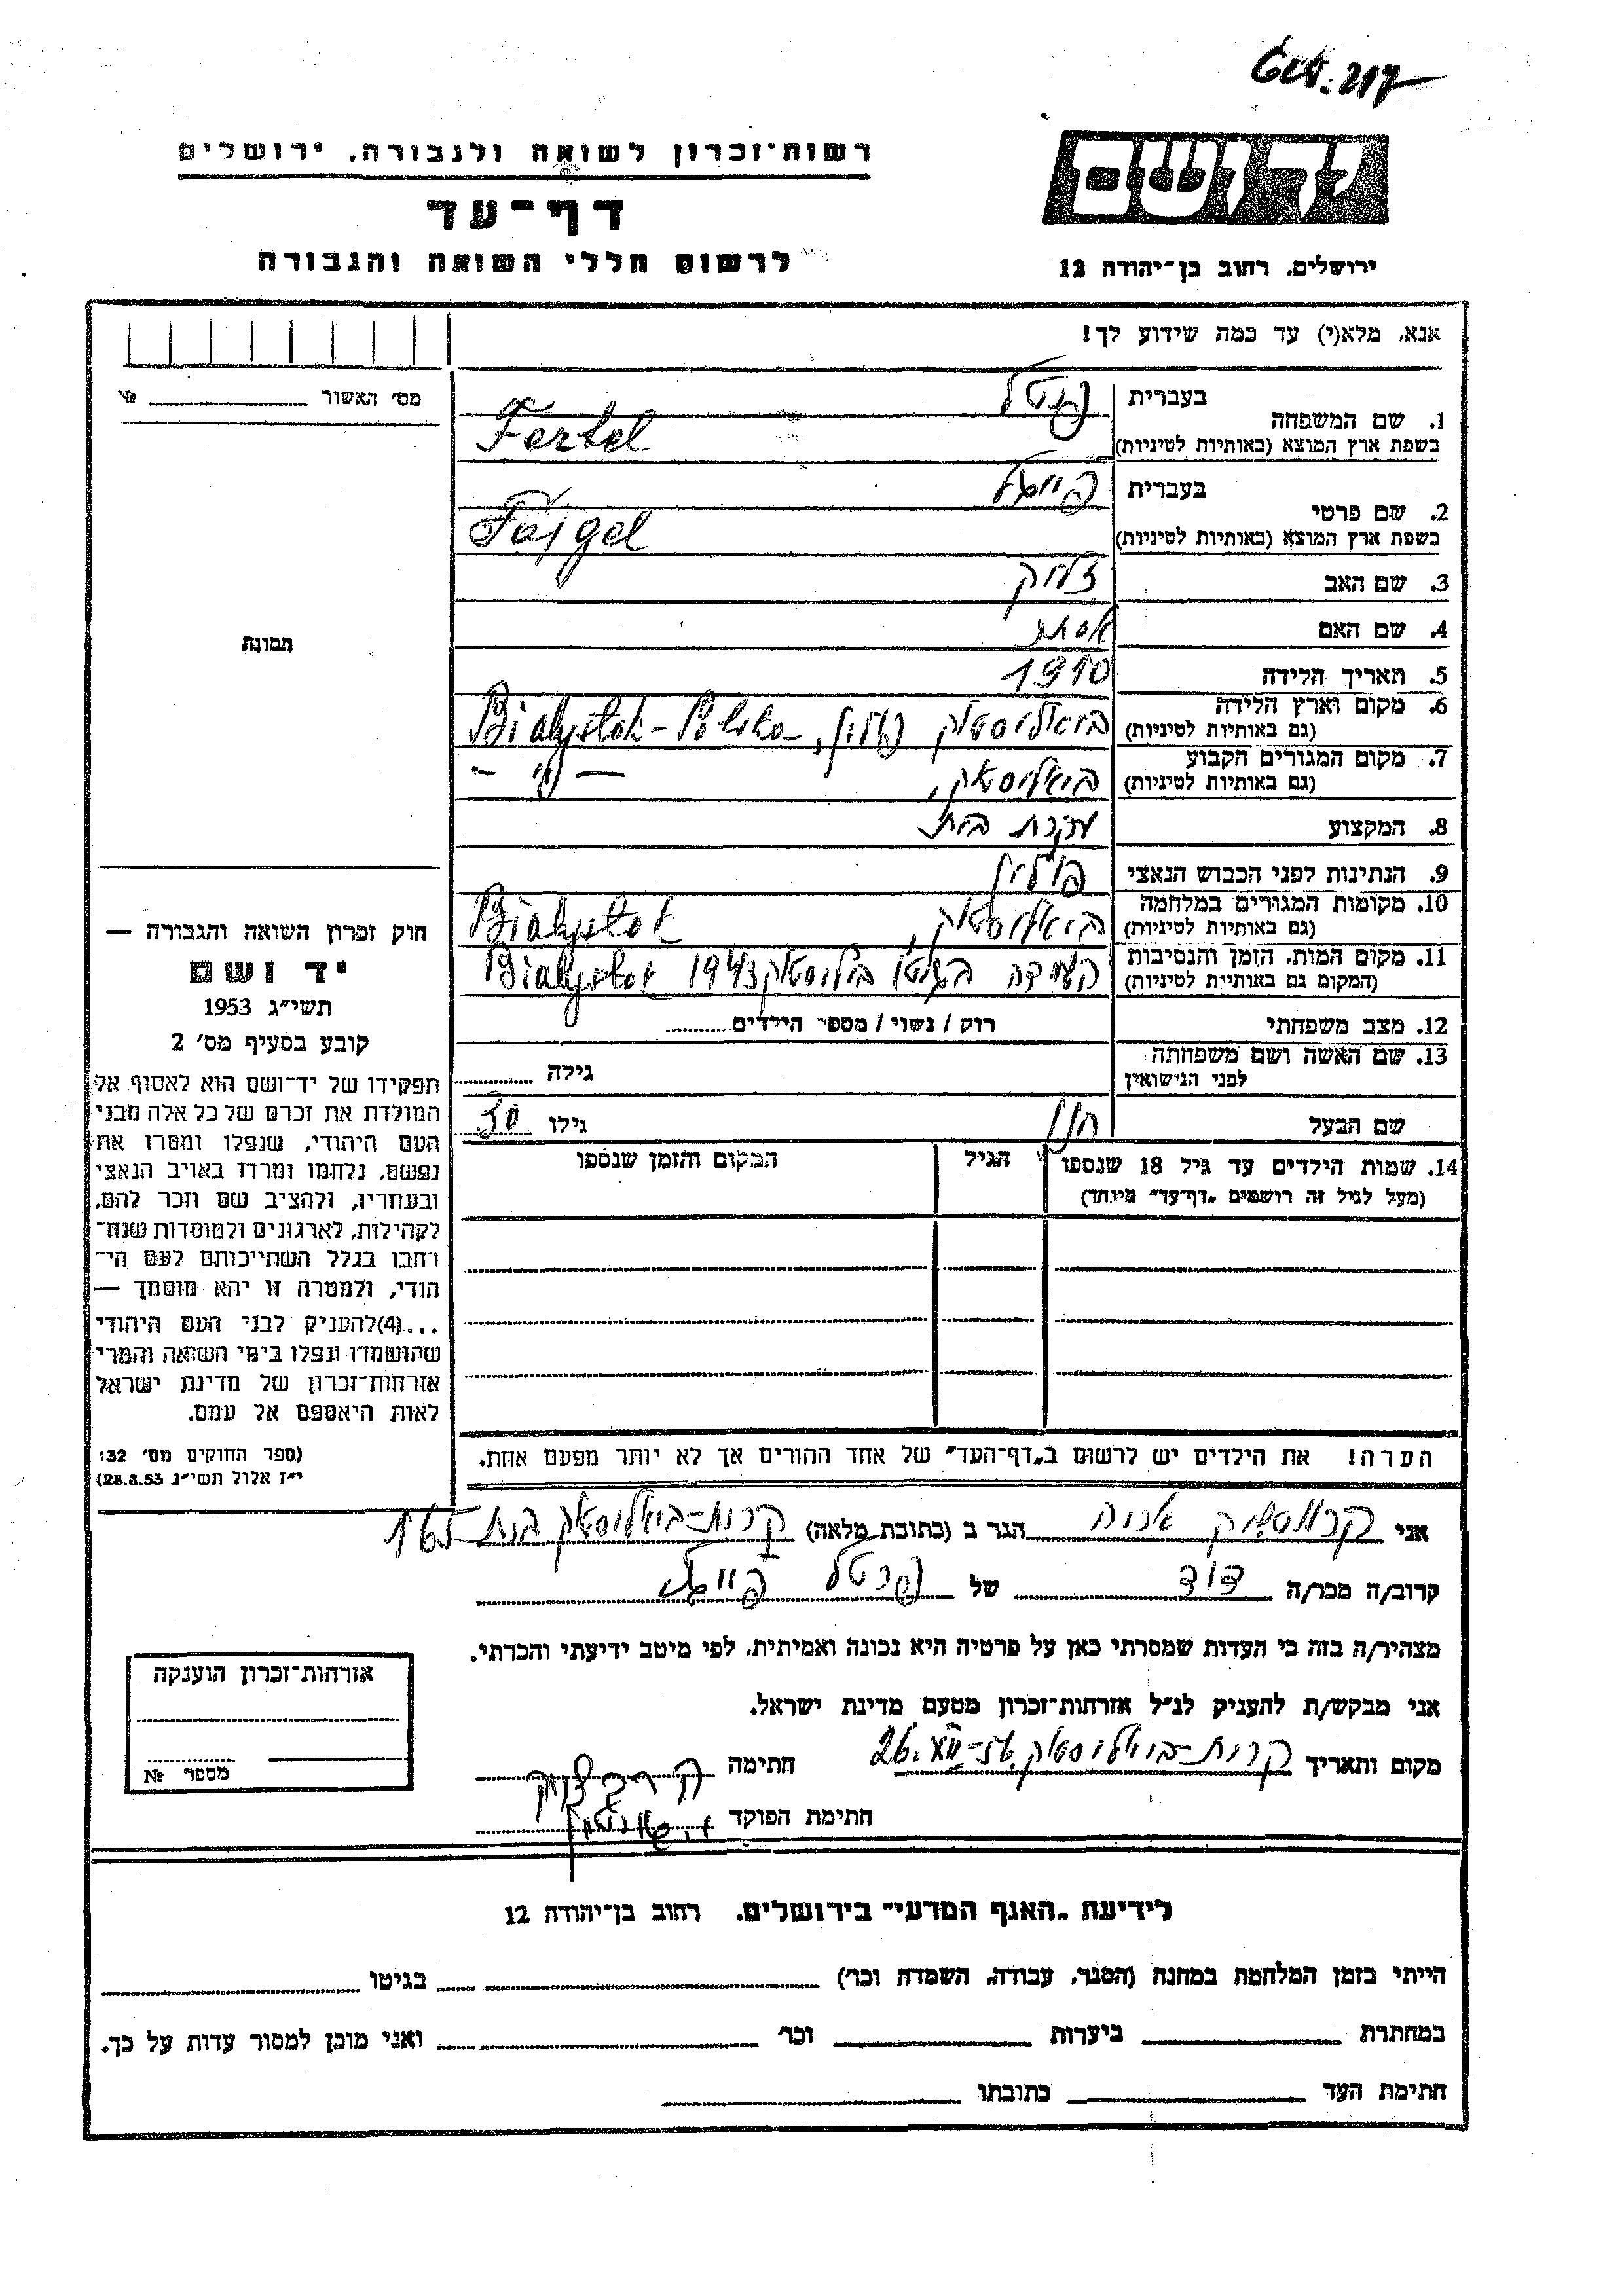 רשות־זכרון לשואה ולגבורה, ירושלים
דף־עד
לרשום חללי השואה והגבורה
יד ושם
ירושלים, רחוב בן־יהודה 12
אנא, מלא(י) עד כמה שידוע לך!
מס׳ האשור
תמונה
1. שם המשפחה
בעברית פרטל
בשפת ארץ המוצא (באותיות לטיניות) Fertel
2. שם פרטי
בעברית פייגל
בשפת ארץ המוצא (באותיות לטיניות) Fajgel
3. שם האב
4. שם האם אסתר
5. תאריך הלידה 1910
6. מקום וארץ הלידה
(גם באותיות לטיניות) ביאליסטוק פולין, Bialystok - Polska
7. מקום המגורים הקבוע
(גם באותיות לטיניות) ביאליסטוק, — " —
8. המקצוע עקרת בית
9. הנתינות לפני הכבוש הנאצי פולין
10. מקומות המגורים במלחמה
(גם באותיות לטיניות) ביאליסטוק, Bialystok
11. מקום המות, הזמן והנסיבות
(המקום גם באותיות לטיניות) בגטו ביאליסטוק 1943 Bialystok
12. מצב משפחתי רוק / נשוי / מספר הילדים
13. שם האשה ושם משפחתה
לפני הנישואין גילה
שם הבעל גילו
14. שמות הילדים עד גיל 18 שנספו הגיל המקום והזמן שנספו
(מעל לגיל זה רושמים „דף־עד" מיוחד)
הערה! את הילדים יש לרשום ב„דף־העד" של אחד ההורים אך לא יותר מפעם אחת.
חוק זכרון השואה והגבורה —
יד ושם
תשי״ג 1953
קובע בסעיף מס׳ 2
תפקידו של יד־ושם הוא לאסוף אל
המולדת את זכרם של כל אלה מבני
העם היהודי, שנפלו ומסרו את
נפשם, נלחמו ומרדו באויב הנאצי
ובעוזריו, ולהציב שם וזכר להם,
לקהילות, לארגונים ולמוסדות שנח־
רבו בגלל השתייכותם לעם הי־
הודי, ולמטרה זו יהא מוסמך —
...(4)להעניק לבני העם היהודי
שהושמדו ונפלו בימי השואה והמרי
אזרחות־זכרון של מדינת ישראל
לאות היאספם אל עמם.
(ספר החוקים מס׳ 132
י״ז אלול תשי״ג 28.8.53)
אני הגר ב (כתובת מלאה) קרית-ביאליסטוק בית 165
קרוב/ה מכר/ה דוד של פרטל פייגל
מצהיר/ה בזה כי העדות שמסרתי כאן על פרטיה היא נכונה ואמיתית, לפי מיטב ידיעתי והכרתי.
אני מבקש/ת להעניק לנ״ל אזרחות־זכרון מטעם מדינת ישראל.
מקום ותאריך קרית-ביאליסטוק חתימה
חתימת הפוקד
אזרחות־זכרון הוענקה
מספר №
לידיעת „האגף המדעי" בירושלים, רחוב בן־יהודה 12
הייתי בזמן המלחמה במחנה (הסגר, עבודה, השמדה וכר׳) בגיטו
במחתרת ביערות וכר׳ ואני מוכן למסור עדות על כך.
חתימת העד כתובתו